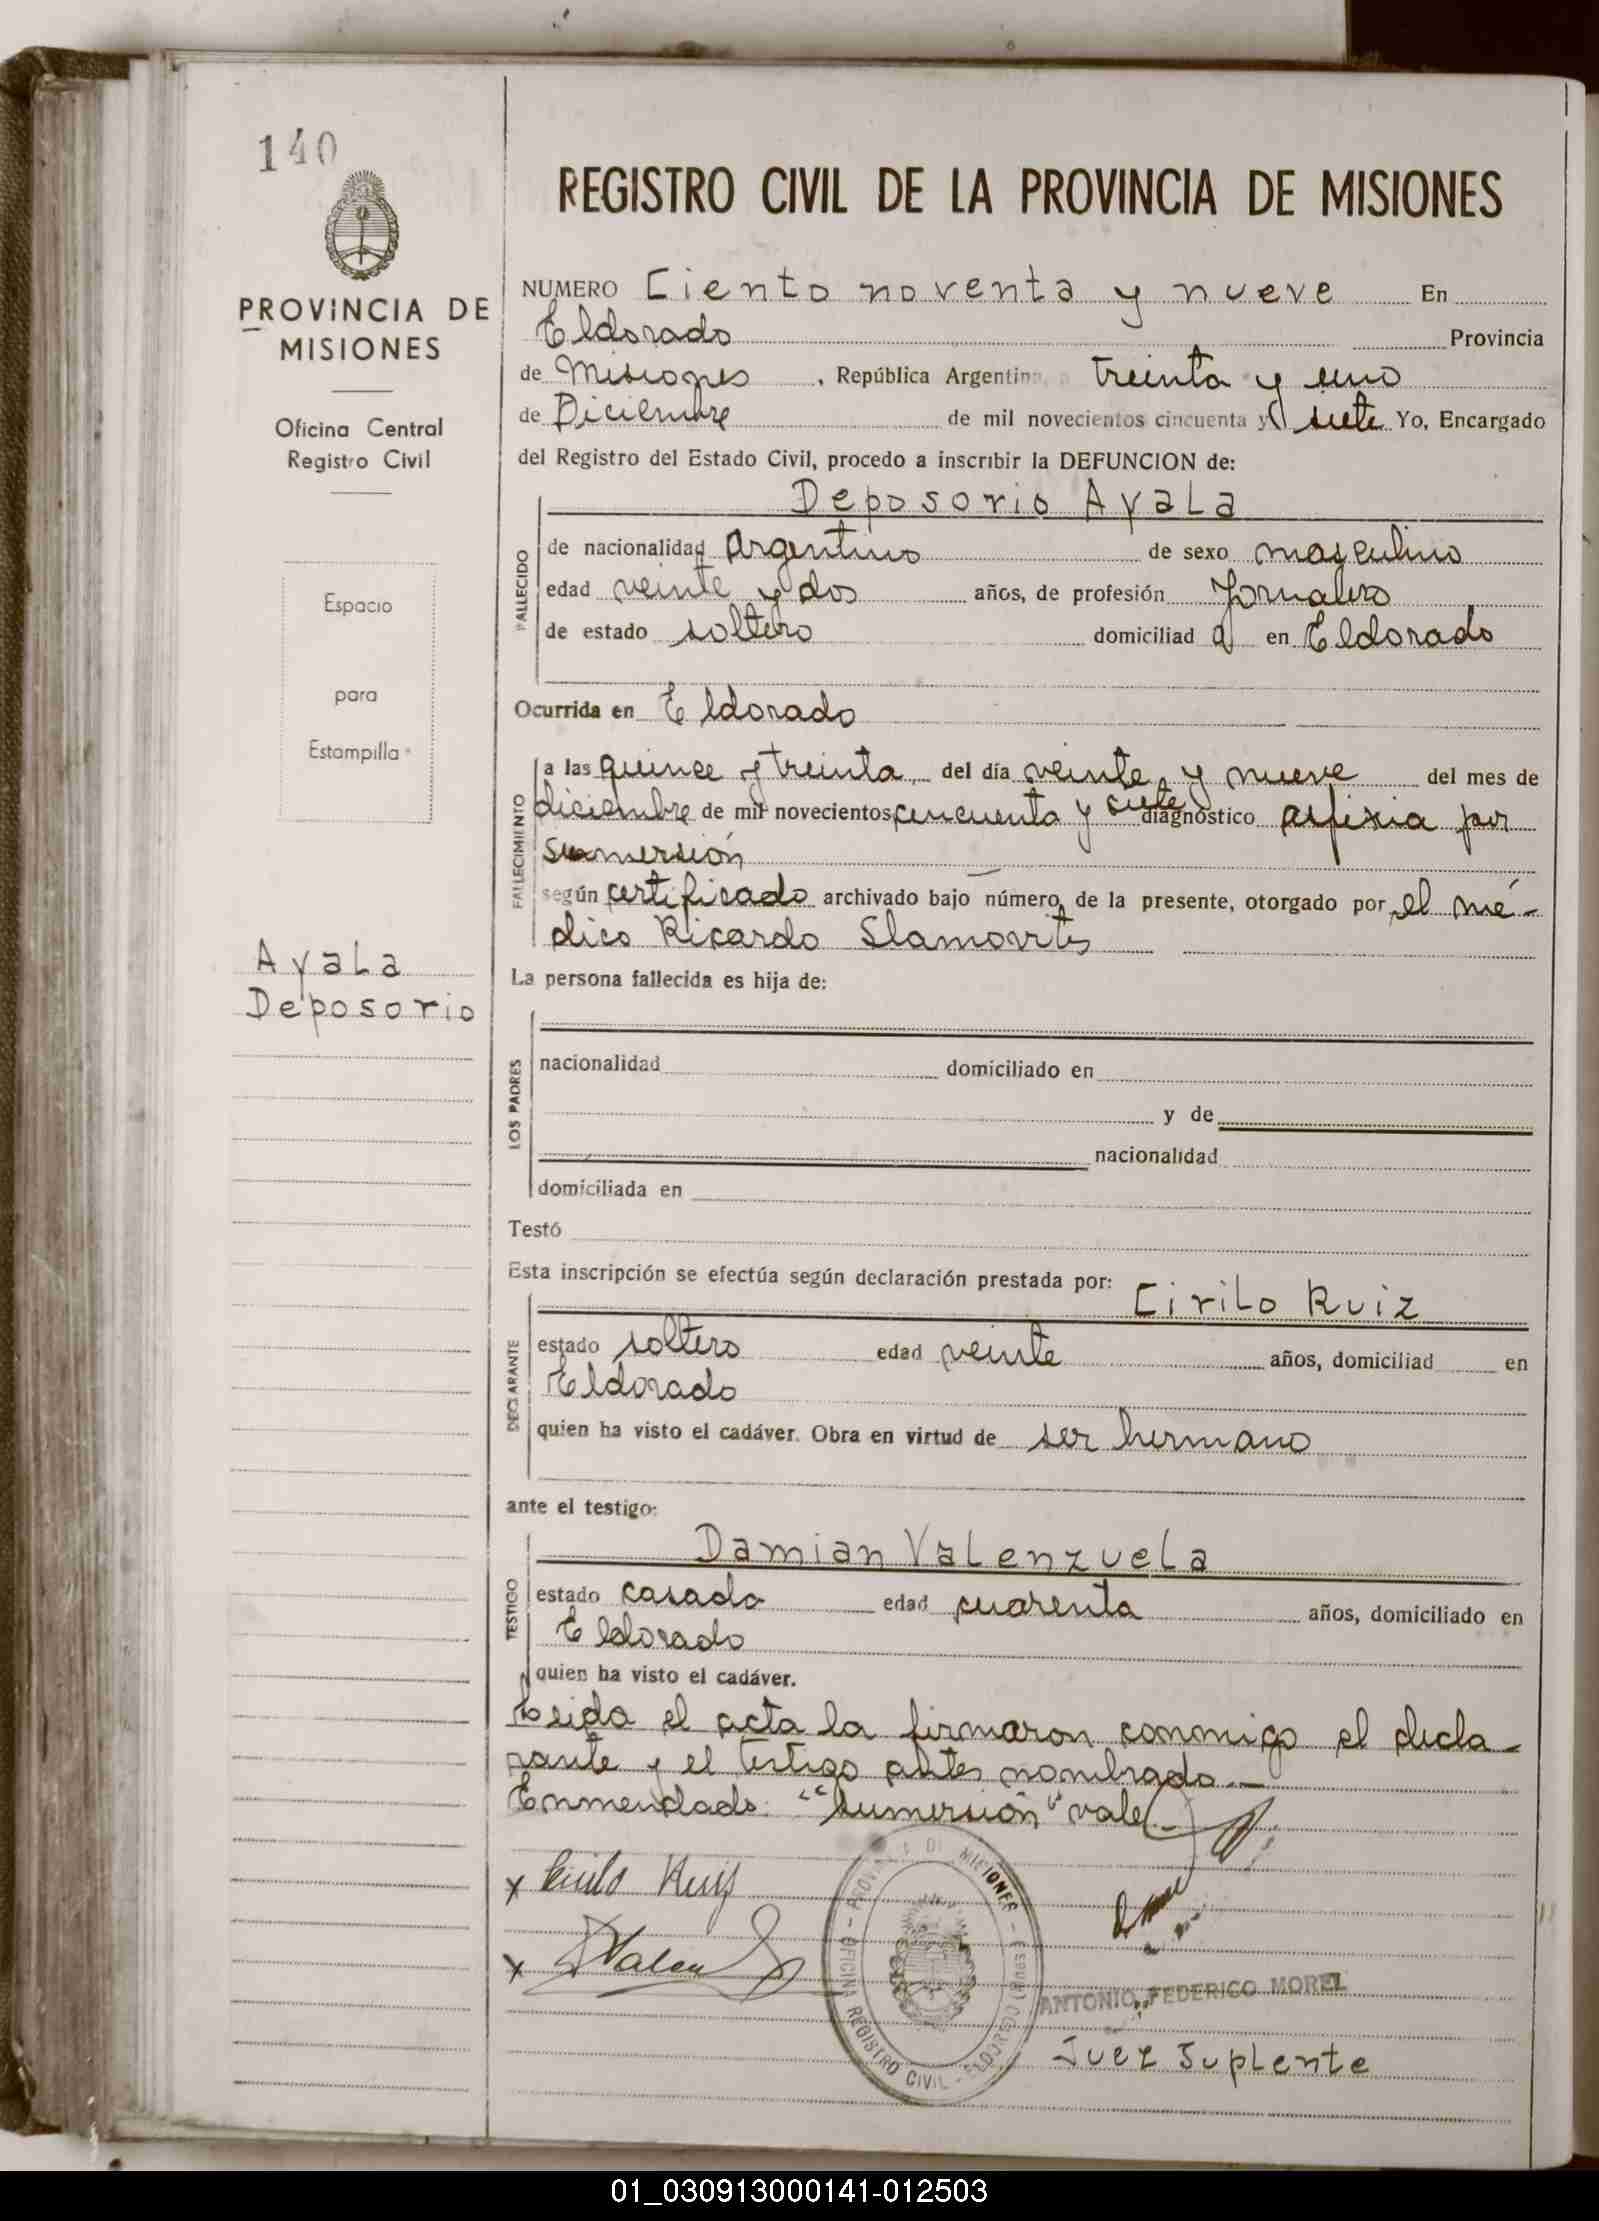 140
PROVINCIA DE
MISIONES
Oficina Central
Registro Civil
Espacio
para
Estampilla
Ayala
Deposorio
REGISTRO CIVIL DE LA PROVINCIA DE MISIONES
NUMERO Ciento noventa y nueve En
Eldorado Provincia
de Misiones, República Argentina, a treinta y uno
de Diciembre de mil novecientos cincuenta y siete Yo, Encargado
del Registro del Estado Civil, procedo a inscribir la DEFUNCION de:
Deposorio Ayala
FALLECIDO
de nacionalidad Argentino de sexo masculino
edad veinte y dos años, de profesión Jornalero
de estado soltero domiciliad o en Eldorado
Ocurrida en Eldorado
FALLECIMIENTO
a las quince y treinta del día veinte y nueve del mes de
diciembre de mil novecientos cincuenta y siete diagnóstico asfixia por
sumersión
según certificado archivado bajo número de la presente, otorgado por el mé-
dico Ricardo Slamovits
La persona fallecida es hija de:
LOS PADRES
nacionalidad domiciliado en
y de
nacionalidad
domiciliada en
Testó
Esta inscripción se efectúa según declaración prestada por: Cirilo Ruiz
DECLARANTE
estado soltero edad veinte años, domiciliad en
Eldorado
quien ha visto el cadáver. Obra en virtud de ser hermano
ante el testigo:
Damian Valenzuela
TESTIGO
estado casado edad cuarenta años, domiciliado en
Eldorado
quien ha visto el cadáver.
Leida el acta la firmaron conmigo el decla-
rante y el testigo antes nombrado.—
Enmendado: "sumersión" vale
x Cirilo Ruiz
x DValen
PROVINCIA DE MISIONES - OFICINA REGISTRO CIVIL - ELDORADO
ANTONIO FEDERICO MOREL
Juez Suplente
01_030913000141-012503